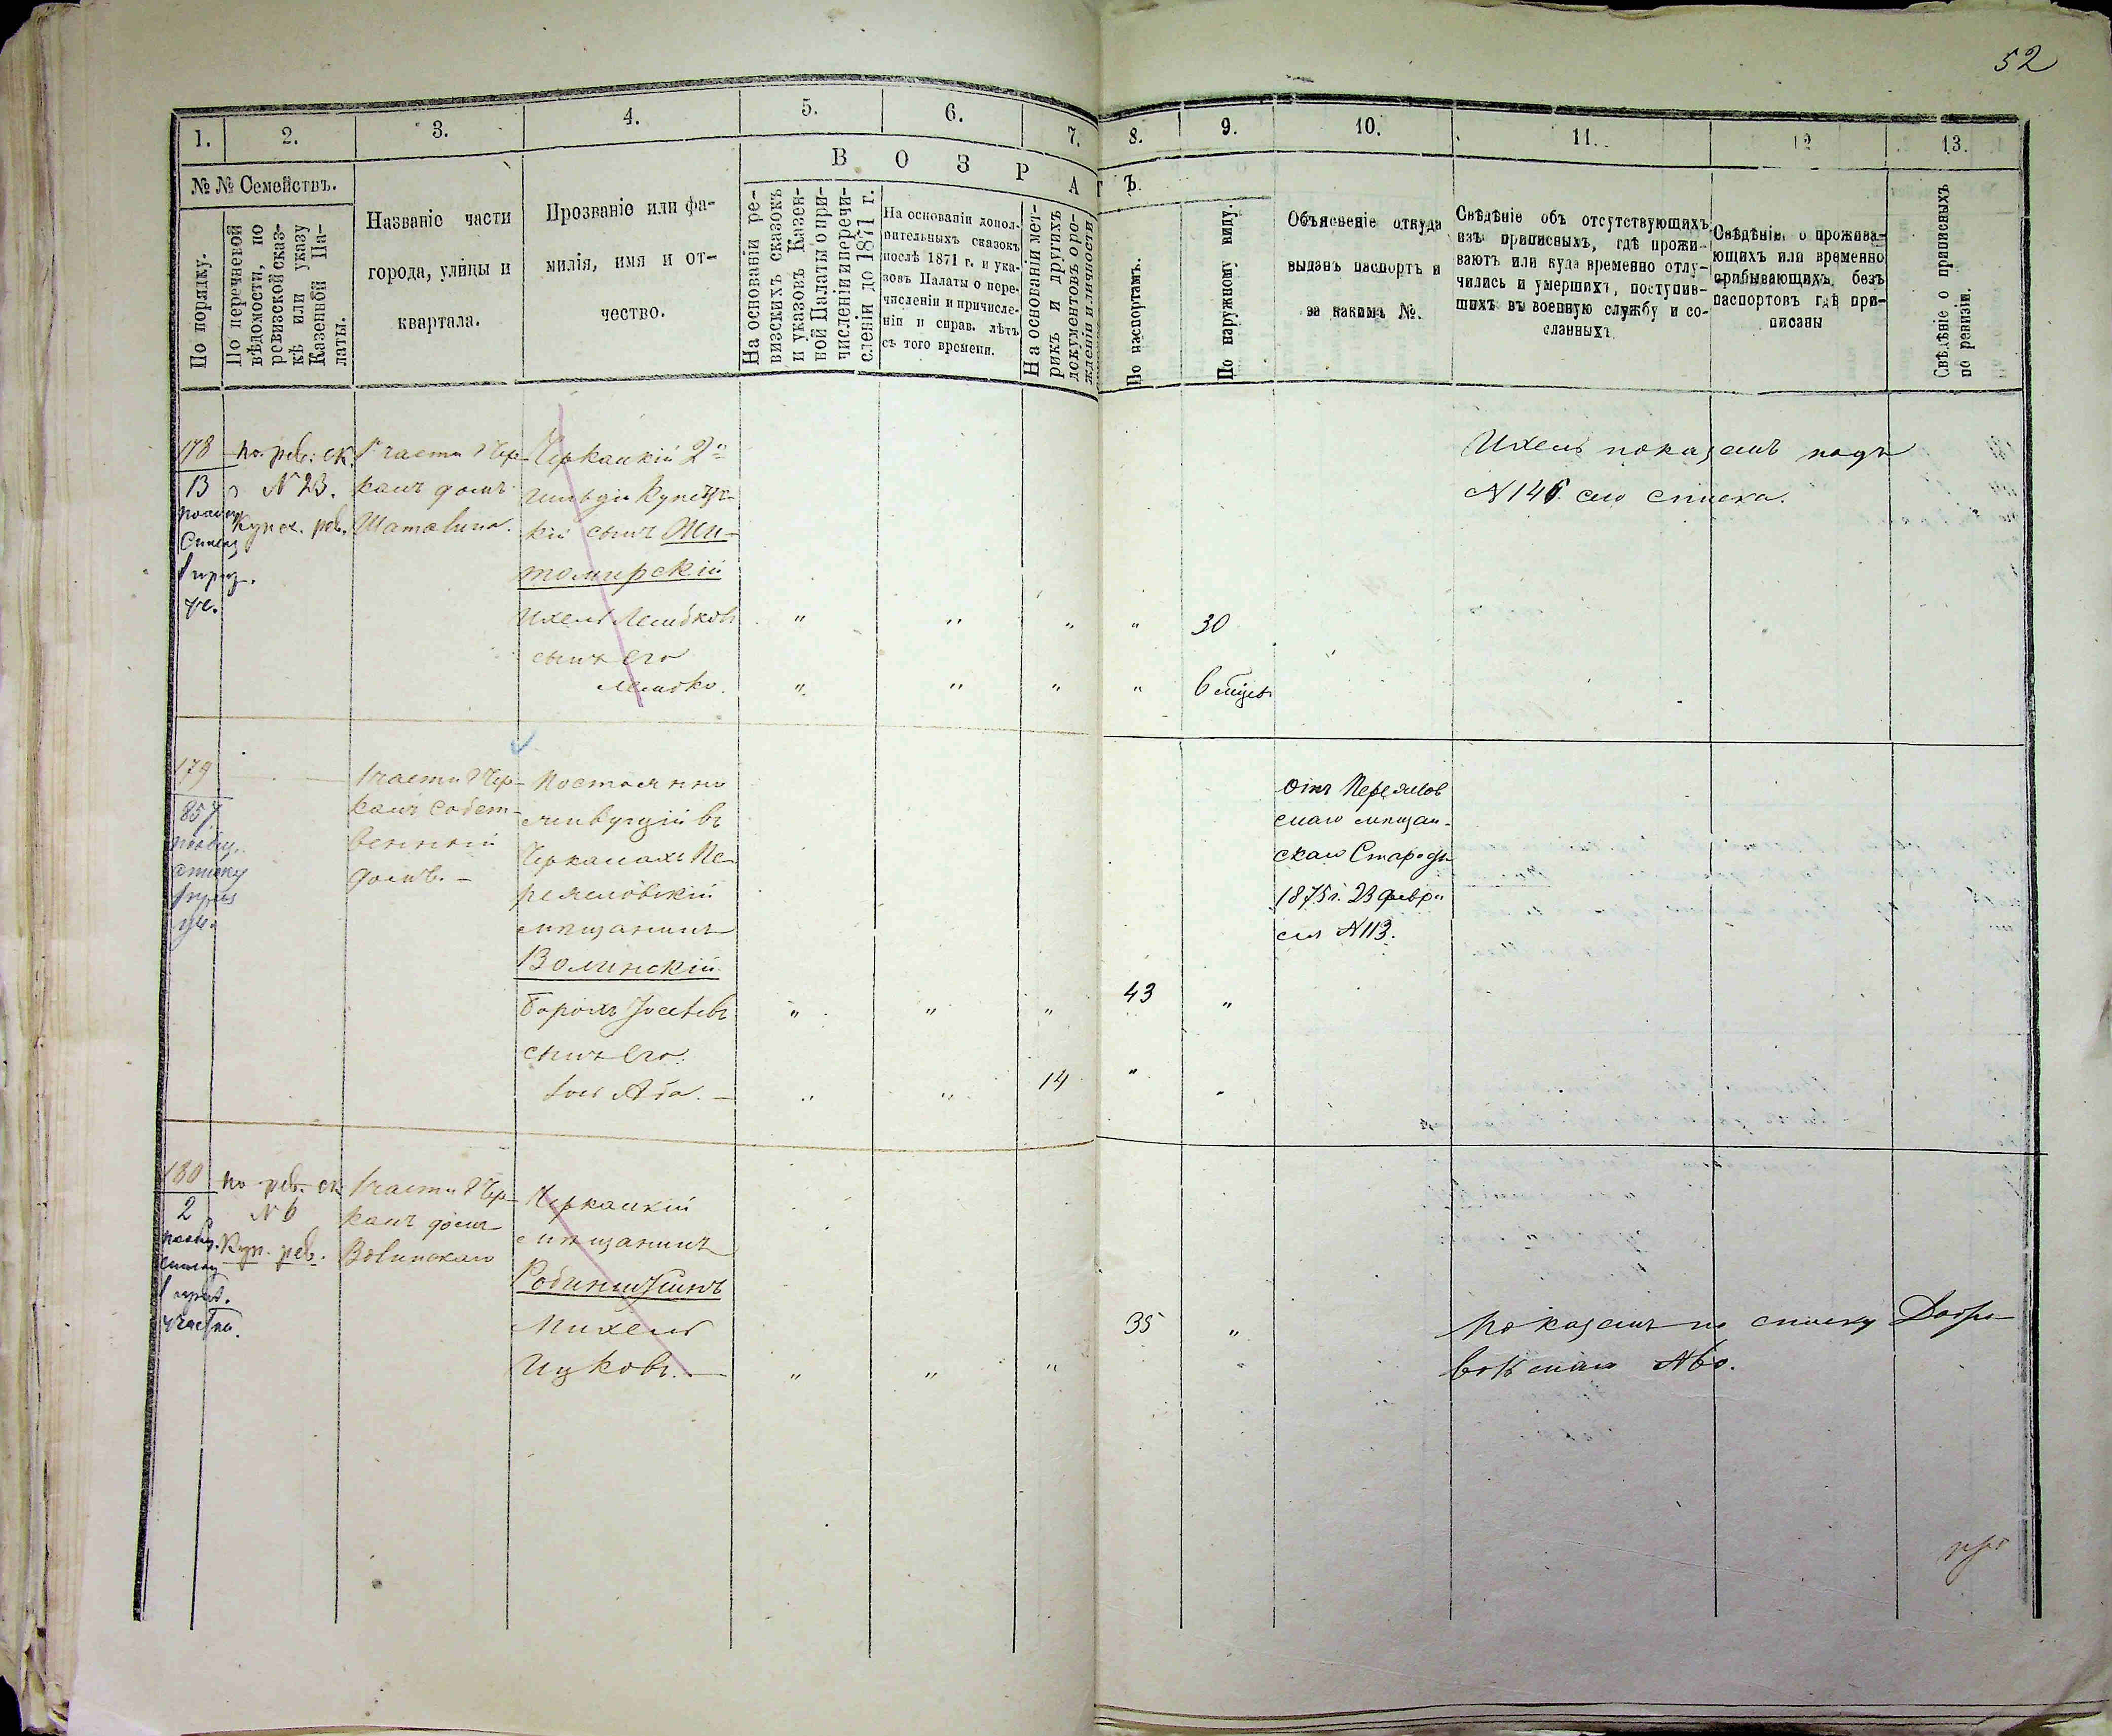 52
1. 2. 3. 4. 5. 6. 7. 8. 9. 10. 11. 12 13.
№ № Семействъ.
По порядку.
По перечневой
вѣдомости, по
ревизской сказ-
кѣ или указу
Казенной Па-
латы.
Названіе части
города, улицы и
квартала.
Прозваніе или фа-
милія, имя и от-
чество.
В О З Р А Т Ъ.
На основаніи ре-
визскихъ сказокъ
и указовъ Казен-
ной Палаты о при-
численіи и перечи-
сленіи до 1871 г.
На основаніи допол-
нительныхъ сказокъ
послѣ 1871 г. и ука-
зовъ Палаты о пере-
численіи и причисле-
ніи и справ. лѣтъ
съ того времени.
На основаніи мет-
рикъ и другихъ
документовъ о ро-
жденіи и личности
По паспортамъ.
По наружному виду.
Объясненіе откуда
выданъ паспортъ и
за какимъ №.
Свѣдѣніе объ отсутствующихъ
изъ приписныхъ, гдѣ прожи-
ваютъ или куда временно отлу-
чились и умершихъ, поступив-
шихъ въ военную службу и со-
сланныхъ
Свѣдѣніе о прожива-
ющихъ или временно
прибывающихъ безъ
паспортовъ гдѣ при-
писаны
Свѣдѣніе о приписныхъ
по ревизіи.
178
13
по рев. ск.
№ 23.
рев.
1 части г Чер-
касъ домъ
Черкаскій 2й
гильдіи Купечес-
кій сынъ Жи-
томирскій
Ихель Лейбковъ " " " " 30
сынъ его
Лейбко. " " " " 6 мѣсяц
Ихель показанъ подъ
№ 146 сего списка.
179
857
1 части г Чер-
касъ собст-
венный
домъ. —
Постоянно
живущій въ
Черкасахъ Пе-
реяславскій
мѣщанинъ
Волинскій
Борохъ Іосевъ " " " 43 "
сынъ его:
Аба. — " " 14 " "
Отъ Переяслов
скаго мѣщан-
скаго Старосты
1875 г. 23 февра
ля №113.
180
2
по рев. ск
№ 6
Куп. рев.
1 части г Чер-
касъ домъ
Черкаскій
мѣщанинъ
Михель 35 "
Ицковъ. — " " "
Показанъ по списку
№ 60.